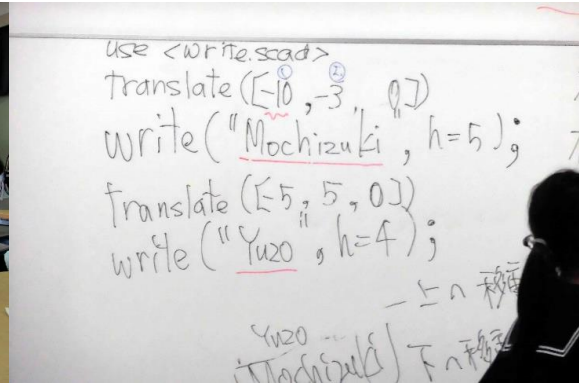 use <write.scad>
① ②
translate([-10, -3, 0])
write("Mochizuki", h=5);
translate([-5, 5, 0])
write("Yuzo", h=4);
一上へ移動
Yuzo
Mochizuki 下へ移動